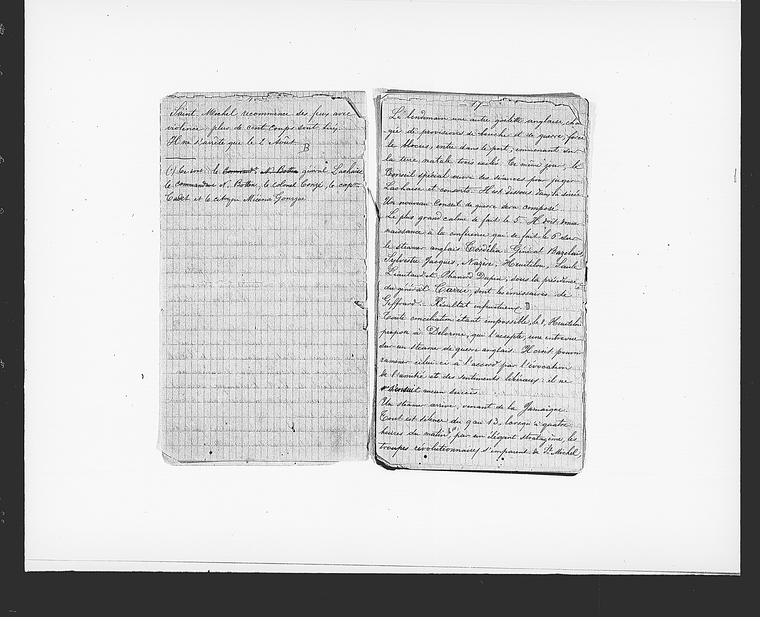 Saint Michel recommence ses feux avec
violence, plus de cent coups sont tirés.
Il ne s'arrête que le 2 Août.
B
(1) Ce sont: le général Lachaise
le commandant N. Botte, le colonel Congé, le capit.
Cadet et le citoyen
17
Le lendemain une autre goëlette anglaise,
de provisions de bouche et de guerre, force
le blocus, entre dans le port,
la terre natale trois exilés. Ce même jour, le
Conseil spécial ouvre des séances pour juger
Lachaise et consorts. Il est dissous dans la soirée.
Un nouveau Conseil de guerre sera composé.
Le plus grand calme se fait le 5. Il doit donner
naissance à la conférence qui se fait le 6 sur
le steamer anglais. Général Bazelais,
Sylvestre Jacques, Nazère, Heurtelou,
Liautaud et Dupin, sous la présidence
du général Carrié, sont les émissaires de
Geffrard. Résultat infructueux.
Toute conciliation étant impossible, le 8, Heurtelou
propose à Delorme, qui l'accepte, une entrevue
sur un steamer de guerre anglais. Il croit pouvoir
ramener celui-ci à l'accord par l'évocation
de l'amitié et des sentiments libéraux: il ne
aucun succès.
Un steamer arrive, venant de la Jamaïque.
Tout est silence du 9 au 13, lorsqu'à quatre
heures du matin, par un élégant stratagème, les
troupes révolutionnaires s'emparent de St. Michel